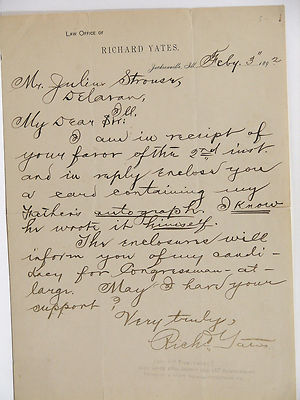 LAW OFFICE OF
RICHARD YATES.
Jacksonville, Ill., Feby. 3" 1892
Mr. Julius Strouse,
Delavan,
Ill.
My Dear Sir:
I am in receipt of
your favor of the 2nd inst.
and in reply enclose you
a card containing my
Father's autograph. I know
he wrote it himself.
The enclosures will
inform you of my candi-
dacy for Congressman-at-
large. May I have your
support?
Very truly,
Richd Yates